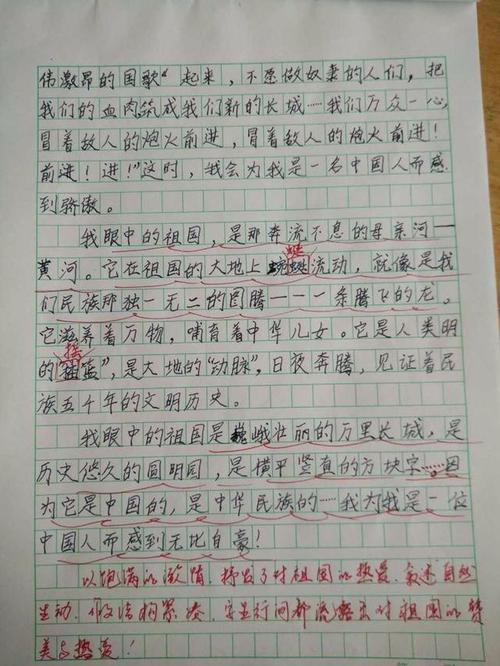 伟激昂的国歌“起来，不愿做奴隶的人们，把
我们的血肉筑成我们新的长城……我们万众一心，
冒着敌人的炮火前进，冒着敌人的炮火前进！
前进！进！”这时，我会为我是一名中国人而感
到骄傲。
我眼中的祖国，是那奔流不息的母亲河——
黄河。它在祖国的大地上蜿蜒流动，就像是我
们民族那独一无二的图腾——一条腾飞的龙。
它滋养着万物，哺育着中华儿女。它是人类明
的“摇篮”，是大地的“动脉”，日夜奔腾，见证着民
族五千年的文明历史。
我眼中的祖国是巍峨壮丽的万里长城，是
历史悠久的圆明园，是横平竖直的方块字……因
为它是中国的，是中华民族的——我为我是一位
中国人而感到无比自豪！
以饱满的激情，抒发了对祖国的热爱，叙述自然
生动，结构紧凑，字里行间都流露出对祖国的赞
美与热爱！